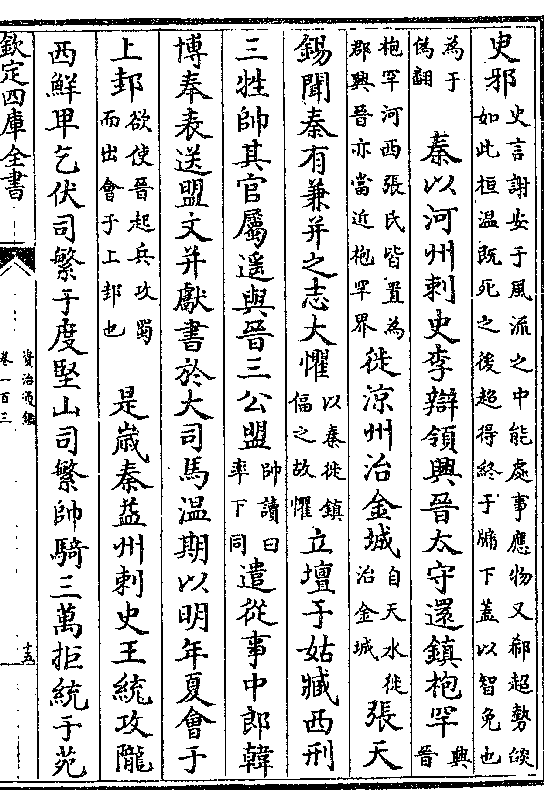 史邪史言謝安于風流之中能處事應物又郗超勢燄
如此桓温既死之後超得終于牖下蓋以智免也
為于
偽翻
秦以河州刺史李辯領興晉太守還鎮枹罕興
晉
枹罕河西張氏皆置為
郡興晉亦當近枹罕界
徙涼州治金城自天水徙
治金城
張天
錫聞秦有兼并之志大懼以秦徙鎮
偪之故懼
立壇于姑臧西刑
三牲帥其官屬遥與晉三公盟帥讀曰
率下同
遣從事中郎韓
博奉表送盟文并獻書於大司馬溫期以明年夏會于
上邽欲使晉起兵攻蜀
而出會于上邽也
是歲秦益州刺史王統攻隴
西鮮卑乞伏司繁于度堅山司繁帥騎三萬拒統于苑
欽定四庫全書
資治通鑑
卷一百三
十五